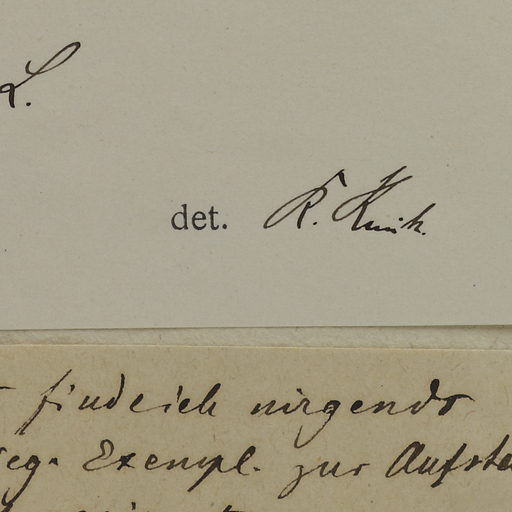 L.
det. R. Knuth.
finde ich nirgends
Exempl. zur